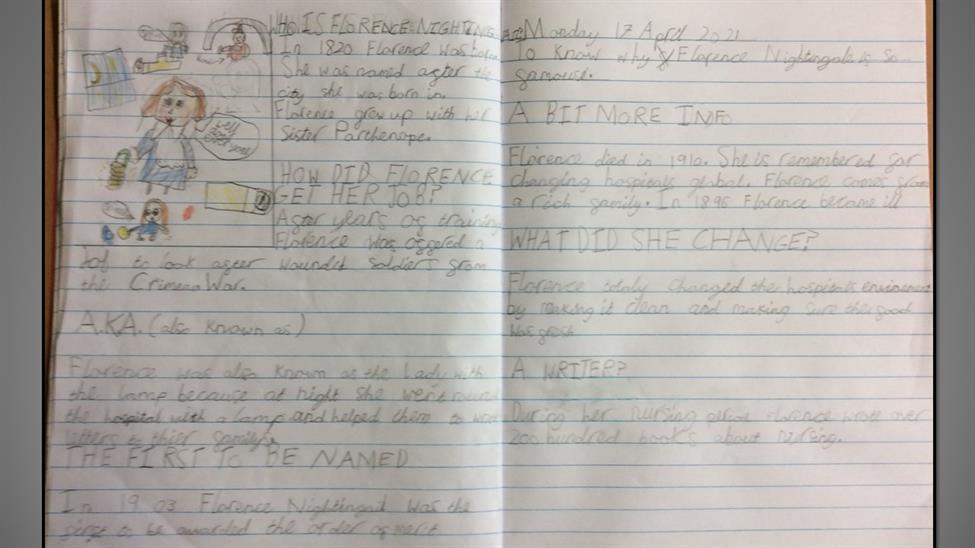 WHO IS FLORENCE NIGHTING
In 1820 Florence was born
She was named after the
city she was born in.
Florence grew up with her
Sister Parthenope.
HOW DID FLORENCE
GET HER JOB?
After years of training
Florence was offered a
job to look after woundet Soldiers from
the Crimean War.
A.K.A. (also known as)
Florence was also known as the Lady with
the lamp because at night she went round
the hospital with a lamp and helped them to
letters to thier family.
THE FIRST TO BE NAMED
In 1903 Florence Nightingail was the
first to be awarded the order of merit
Monday 17 April 2021
To know why Florence Nightingale is so
famouse.
A BIT MORE INFO
Florence died in 1910. She is remembered for
changing hospitals global. Florence comes from
a rich family. In 1895 Florence became ill
WHAT DID SHE CHANGE?
Florence totaly changed the hospitals
by making it clean and making sure the food
was fresh
A WRITER?
During her nursing Florence wrote over
200 hundred books about nursing.